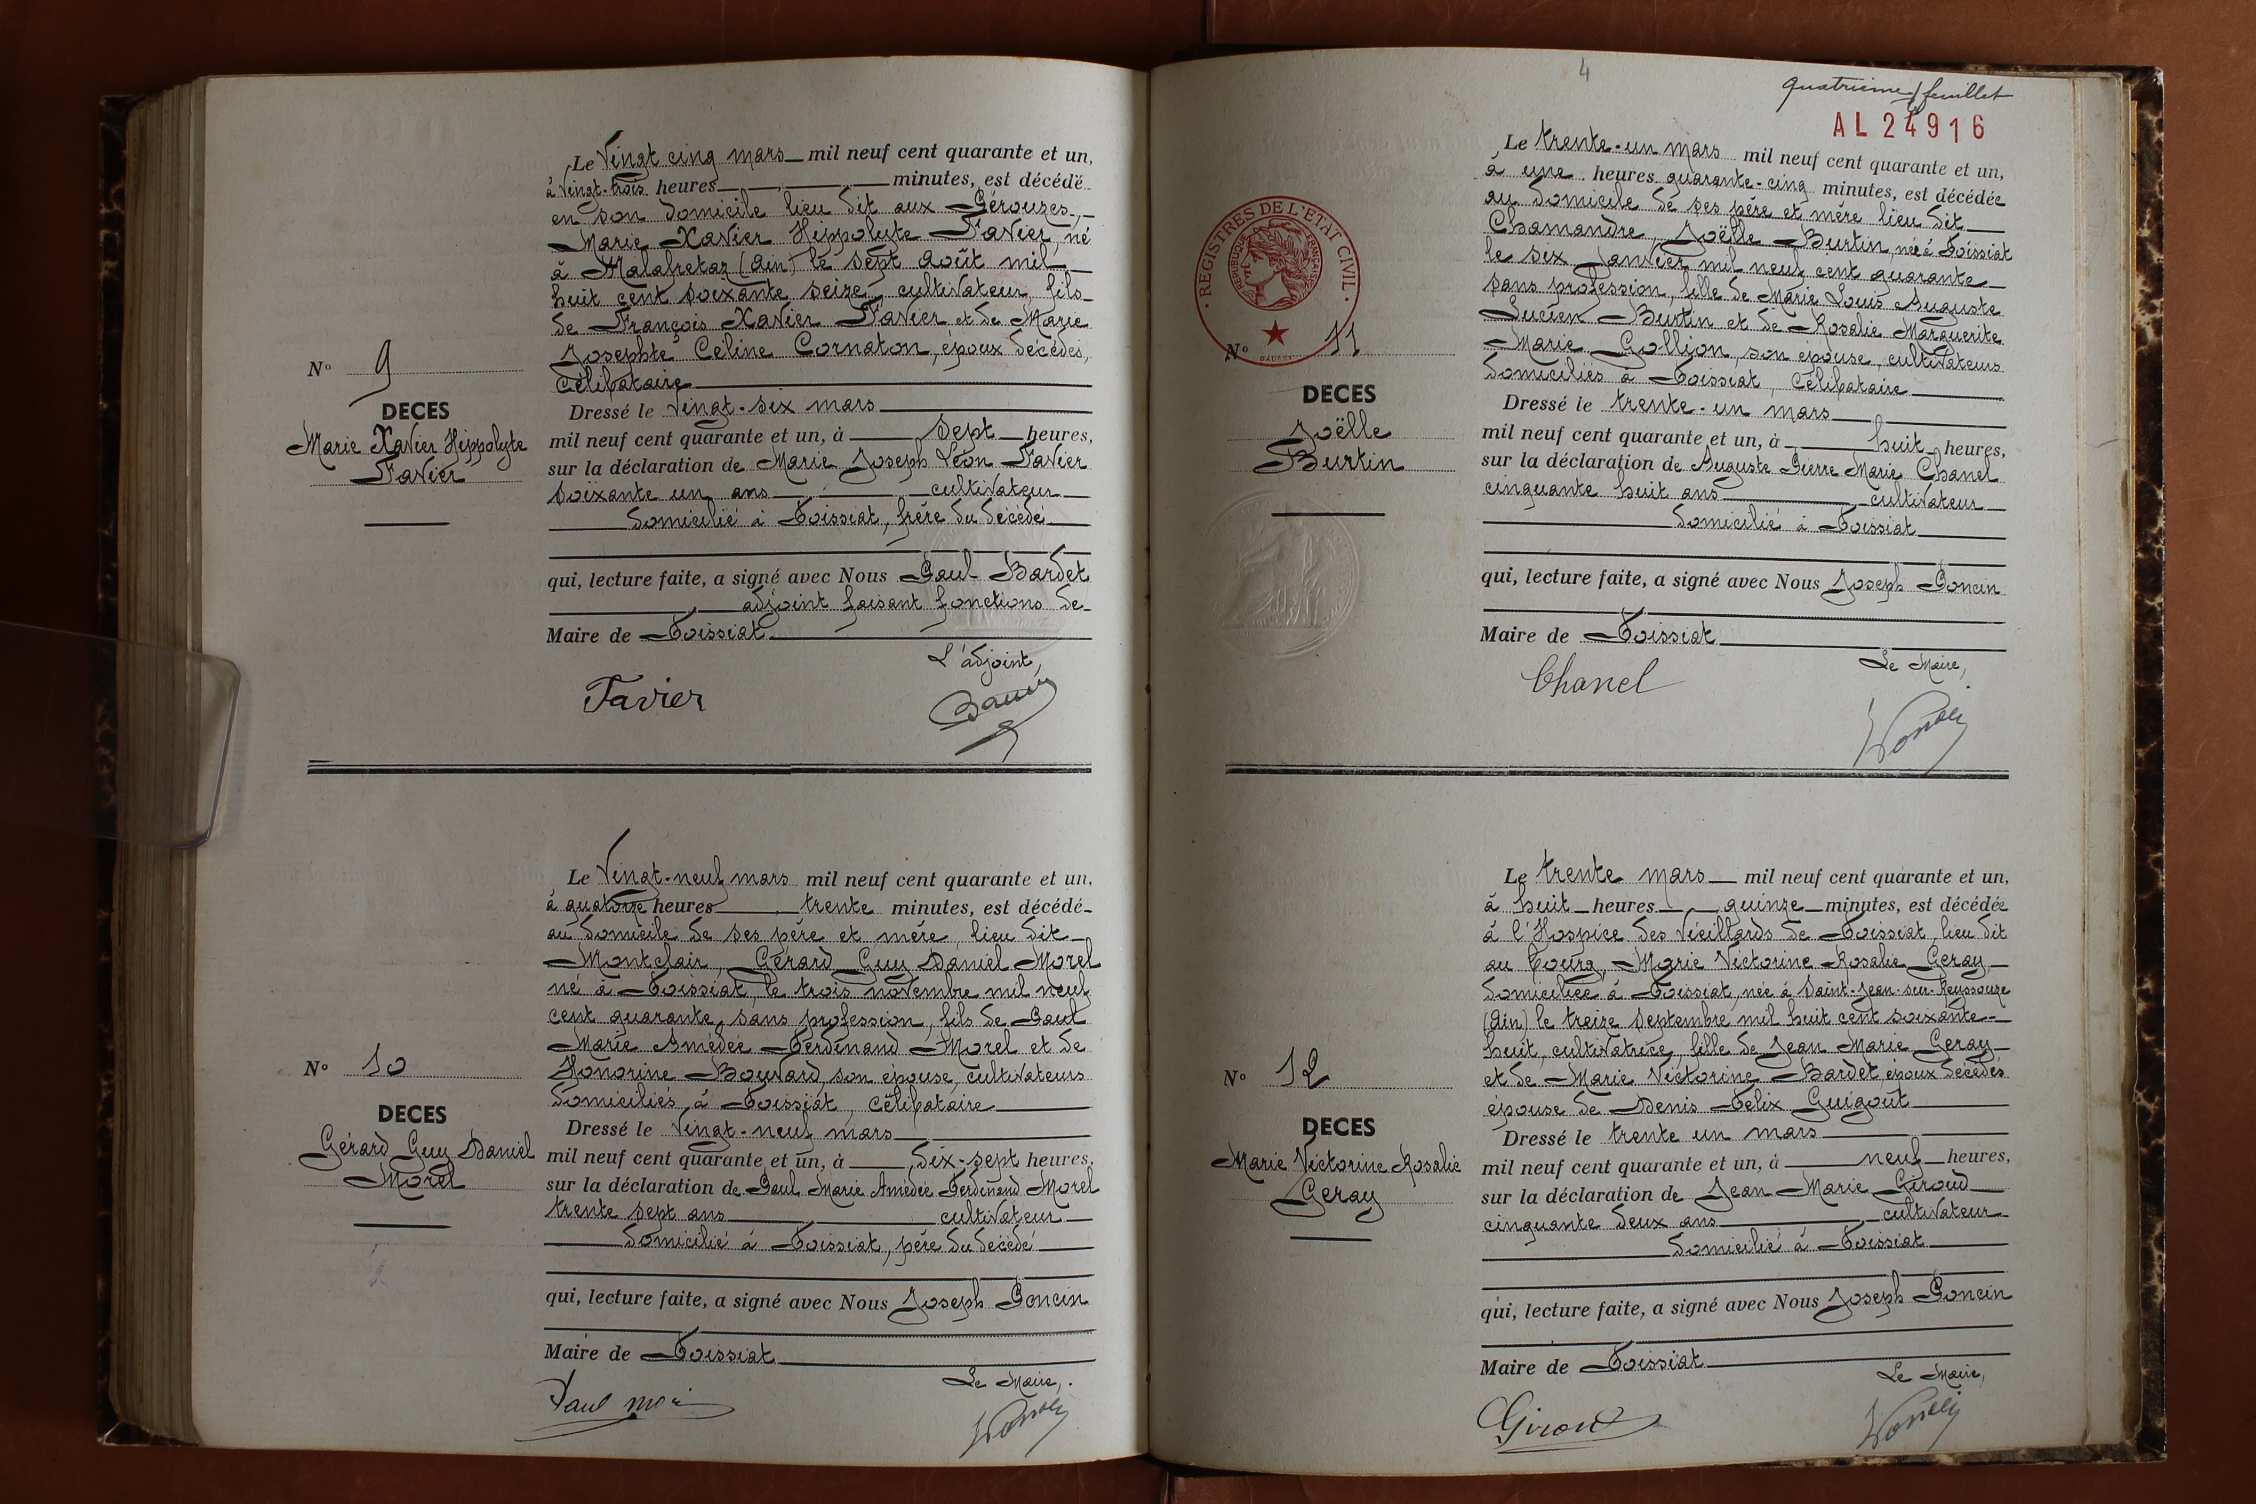 Le vingt cinq mars mil neuf cent quarante et un,
à vingt-trois heures minutes, est décédé
en son domicile lieu dit aux Gérouges,
Marie Xavier Hippolyte Favier, né
à Malafretaz (Ain) le sept août mil
huit cent soixante seize, cultivateur, fils
de François Xavier Favier et de Marie
Josephte Céline Cornaton, époux décédés,
célibataire
N° 9
DECES
Marie Xavier Hippolyte
Favier
Dressé le vingt-six mars
mil neuf cent quarante et un, à sept heures,
sur la déclaration de Marie Joseph Léon Favier
soixante un ans cultivateur
domicilié à Foissiat, frère du décédé
qui, lecture faite, a signé avec Nous Paul Bardet
adjoint faisant fonctions de
Maire de Foissiat
L'adjoint,
Favier
Le vingt-neuf mars mil neuf cent quarante et un,
à quatorze heures trente minutes, est décédé
au domicile de ses père et mère, lieu dit
Montclair, Gérard Guy Daniel Morel
né à Foissiat, le trois novembre mil neuf
cent quarante, sans profession, fils de Paul
Marie Amédée Ferdinand Morel et de
Honorine Bouvard, son épouse, cultivateurs
domiciliés à Foissiat, célibataire
N° 10
DECES
Gérard Guy Daniel
Morel
Dressé le vingt-neuf mars
mil neuf cent quarante et un, à dix-sept heures,
sur la déclaration de Paul Marie Amédée Ferdinand Morel
trente sept ans cultivateur
domicilié à Foissiat, père du décédé
qui, lecture faite, a signé avec Nous Joseph Poncin
Maire de Foissiat
Le Maire,
Paul
4
quatrième feuillet
AL 24916
Le trente-un mars mil neuf cent quarante et un,
à une heures quarante-cinq minutes, est décédée
au domicile de ses père et mère lieu dit
Chamandre, Joëlle Burtin, née à Foissiat
le six janvier mil neuf cent quarante
sans profession, fille de Marie Louis Auguste
Lucien Burtin et de Rosalie Marguerite
Marie Gollion, son épouse, cultivateurs
domiciliés à Foissiat, célibataire
REGISTRES DE L'ETAT CIVIL
REPUBLIQUE FRANÇAISE
N° 11
DECES
Joëlle
Burtin
Dressé le trente-un mars
mil neuf cent quarante et un, à huit heures,
sur la déclaration de Auguste Pierre Marie Chanel
cinquante huit ans cultivateur
domicilié à Foissiat
qui, lecture faite, a signé avec Nous Joseph Poncin
Maire de Foissiat
Le Maire,
Chanel
Le trente mars mil neuf cent quarante et un,
à huit heures quinze minutes, est décédée
à l'Hospice des Vieillards de Foissiat, lieu dit
au bourg, Marie Victorine Rosalie Geray
domiciliée à Foissiat, née à Saint-Jean-sur-Reyssouze
(Ain) le treize septembre mil huit cent soixante-
huit, cultivatrice, fille de Jean Marie Geray
et de Marie Victorine Bardet, époux décédés
épouse de Denis Félix Guigoût
N° 12
DECES
Marie Victorine Rosalie
Geray
Dressé le trente un mars
mil neuf cent quarante et un, à neuf heures,
sur la déclaration de Jean Marie Giroud
cinquante deux ans cultivateur
domicilié à Foissiat
qui, lecture faite, a signé avec Nous Joseph Poncin
Maire de Foissiat
Le Maire,
Giroud